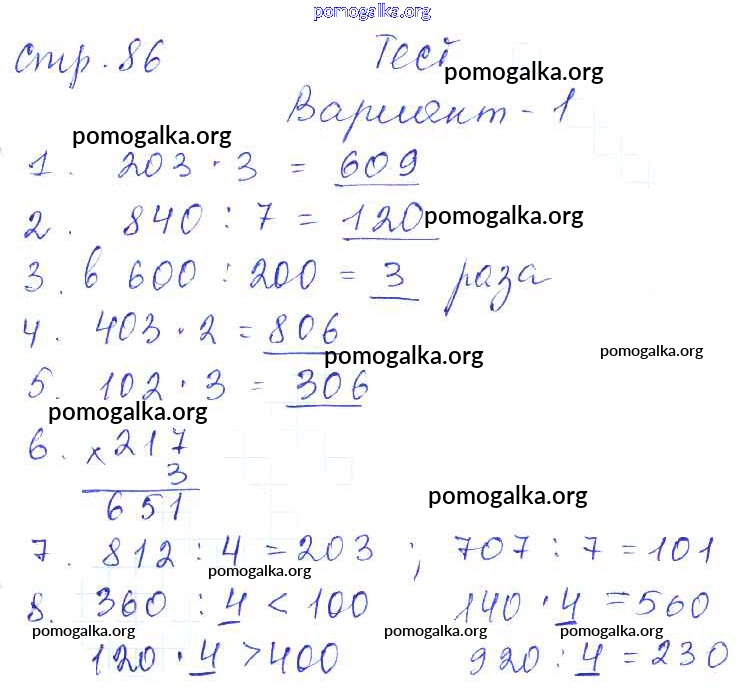 pomogalka.org
стр. 86 Тест
pomogalka.org
Вариант - 1
pomogalka.org
1. 203 · 3 = 609
2. 840 : 7 = 120 pomogalka.org
3. в 600 : 200 = 3 раза
4. 403 · 2 = 806
pomogalka.org pomogalka.org
5. 102 · 3 = 306
pomogalka.org
6. × 217
3
651
pomogalka.org
7. 812 : 4 = 203 ; 707 : 7 = 101
pomogalka.org
8. 360 : 4 < 100 140 · 4 = 560
pomogalka.org pomogalka.org pomogalka.org
120 · 4 > 400 920 : 4 = 230